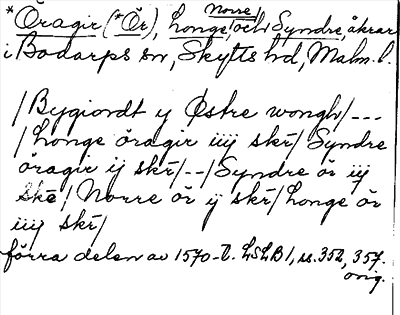 *Öragir (*Ör), Longe, Norre och Syndre, åkrar
i Bodarps sn, Skytts hd, Malm. l.
/Bygiordt y Østre wongh/---
/Longe öragir iiij skr/ Syndre
öragir ij skr/--/Syndre ör iij
skr/ Norre ör ij skr/ Longe ör
iiij skr/
förra delen av 1570-t. LSLB 1, ss. 352, 357.
orig.